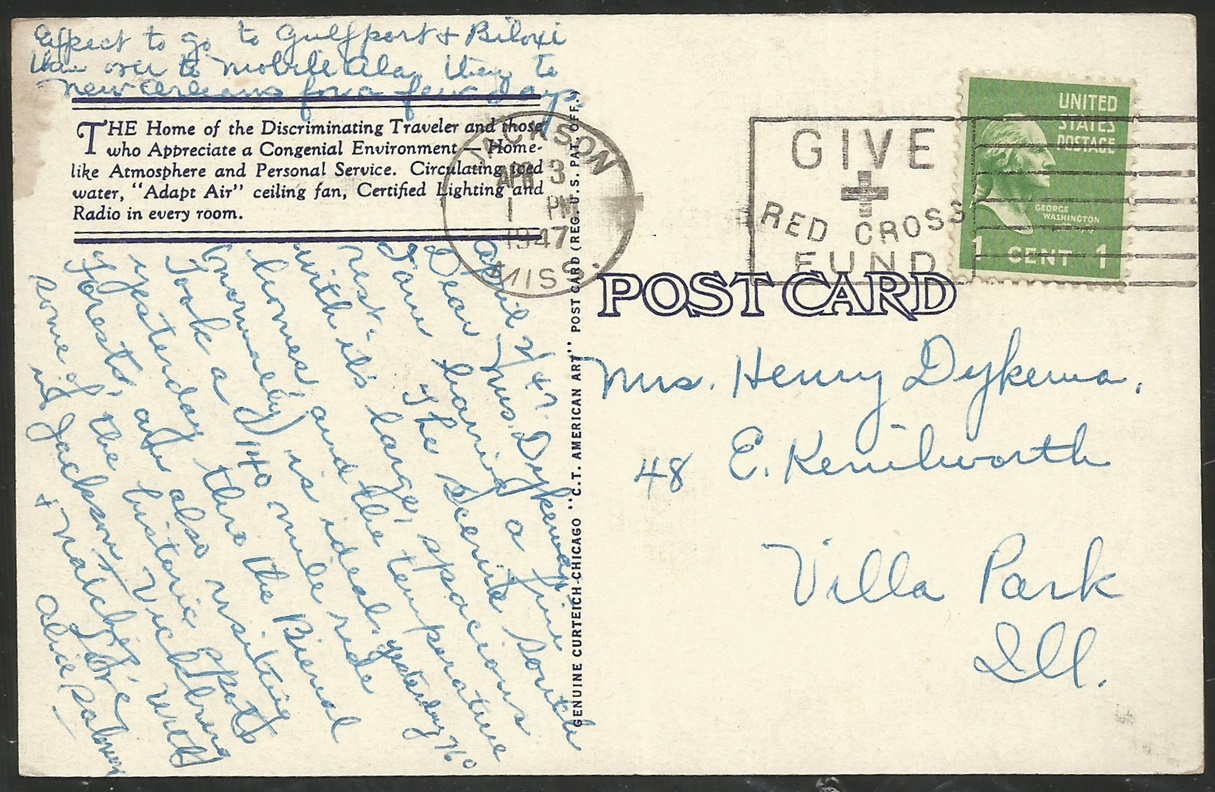 Expect to go to Gulfport & Biloxi
then over to Mobile Ala. then to
New Orleans for a few days
THE Home of the Discriminating Traveler and those
who Appreciate a Congenial Environment — Home-
like Atmosphere and Personal Service. Circulating iced
water, "Adapt Air" ceiling fan, Certified Lighting and
Radio in every room.
April 2/47.
Dear Mrs. Dykema
I am having a fine
rest. The Scenic South
with it's large, spacious
homes and the temperature
(normally) is ideal, yesterday 76°
Took a 140 mile ride
yesterday thru the Bienal
forests, and also visiting
some of the historic spots
in Jackson, Vicksburg
& Natchez
Love,
Alice
GENUINE CURTEICH-CHICAGO "C.T. AMERICAN ART" POST CARD (REG. U.S. PAT. OFF.)
JACKSON
APR 3
1 PM
1947
MISS.
GIVE
RED CROSS
FUND
UNITED
STATES
POSTAGE
GEORGE
WASHINGTON
1 CENT 1
POST CARD
Mrs. Henry Dykema.
48 E. Kenilworth
Villa Park
Ill.